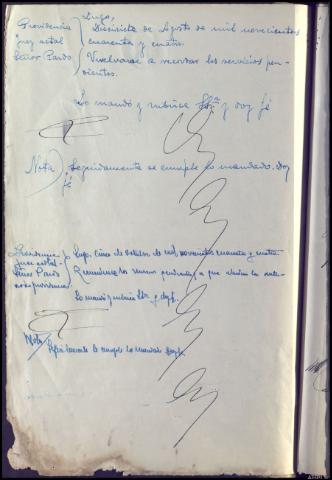 Providencia Lugo,
Juez actal Diecisiete de Agosto de mil novecientos
Señor Pardo cuarenta y cuatro.
Vuelvanse a recordar los servicios pen-
dientes.
Lo mandó y rubrica Sª y doy fé
Nota) Seguidamente se cumple lo mandado, doy
fé
Providencia Lugo, cinco de octubre de mil novecientos cuarenta y cuatro
Juez actal-
Señor Pardo a que aluden la ante-
rior providencia
Lo mandó y rubrica y doy fe.
Nota
Seguidamente se cumple lo mandado doy fe